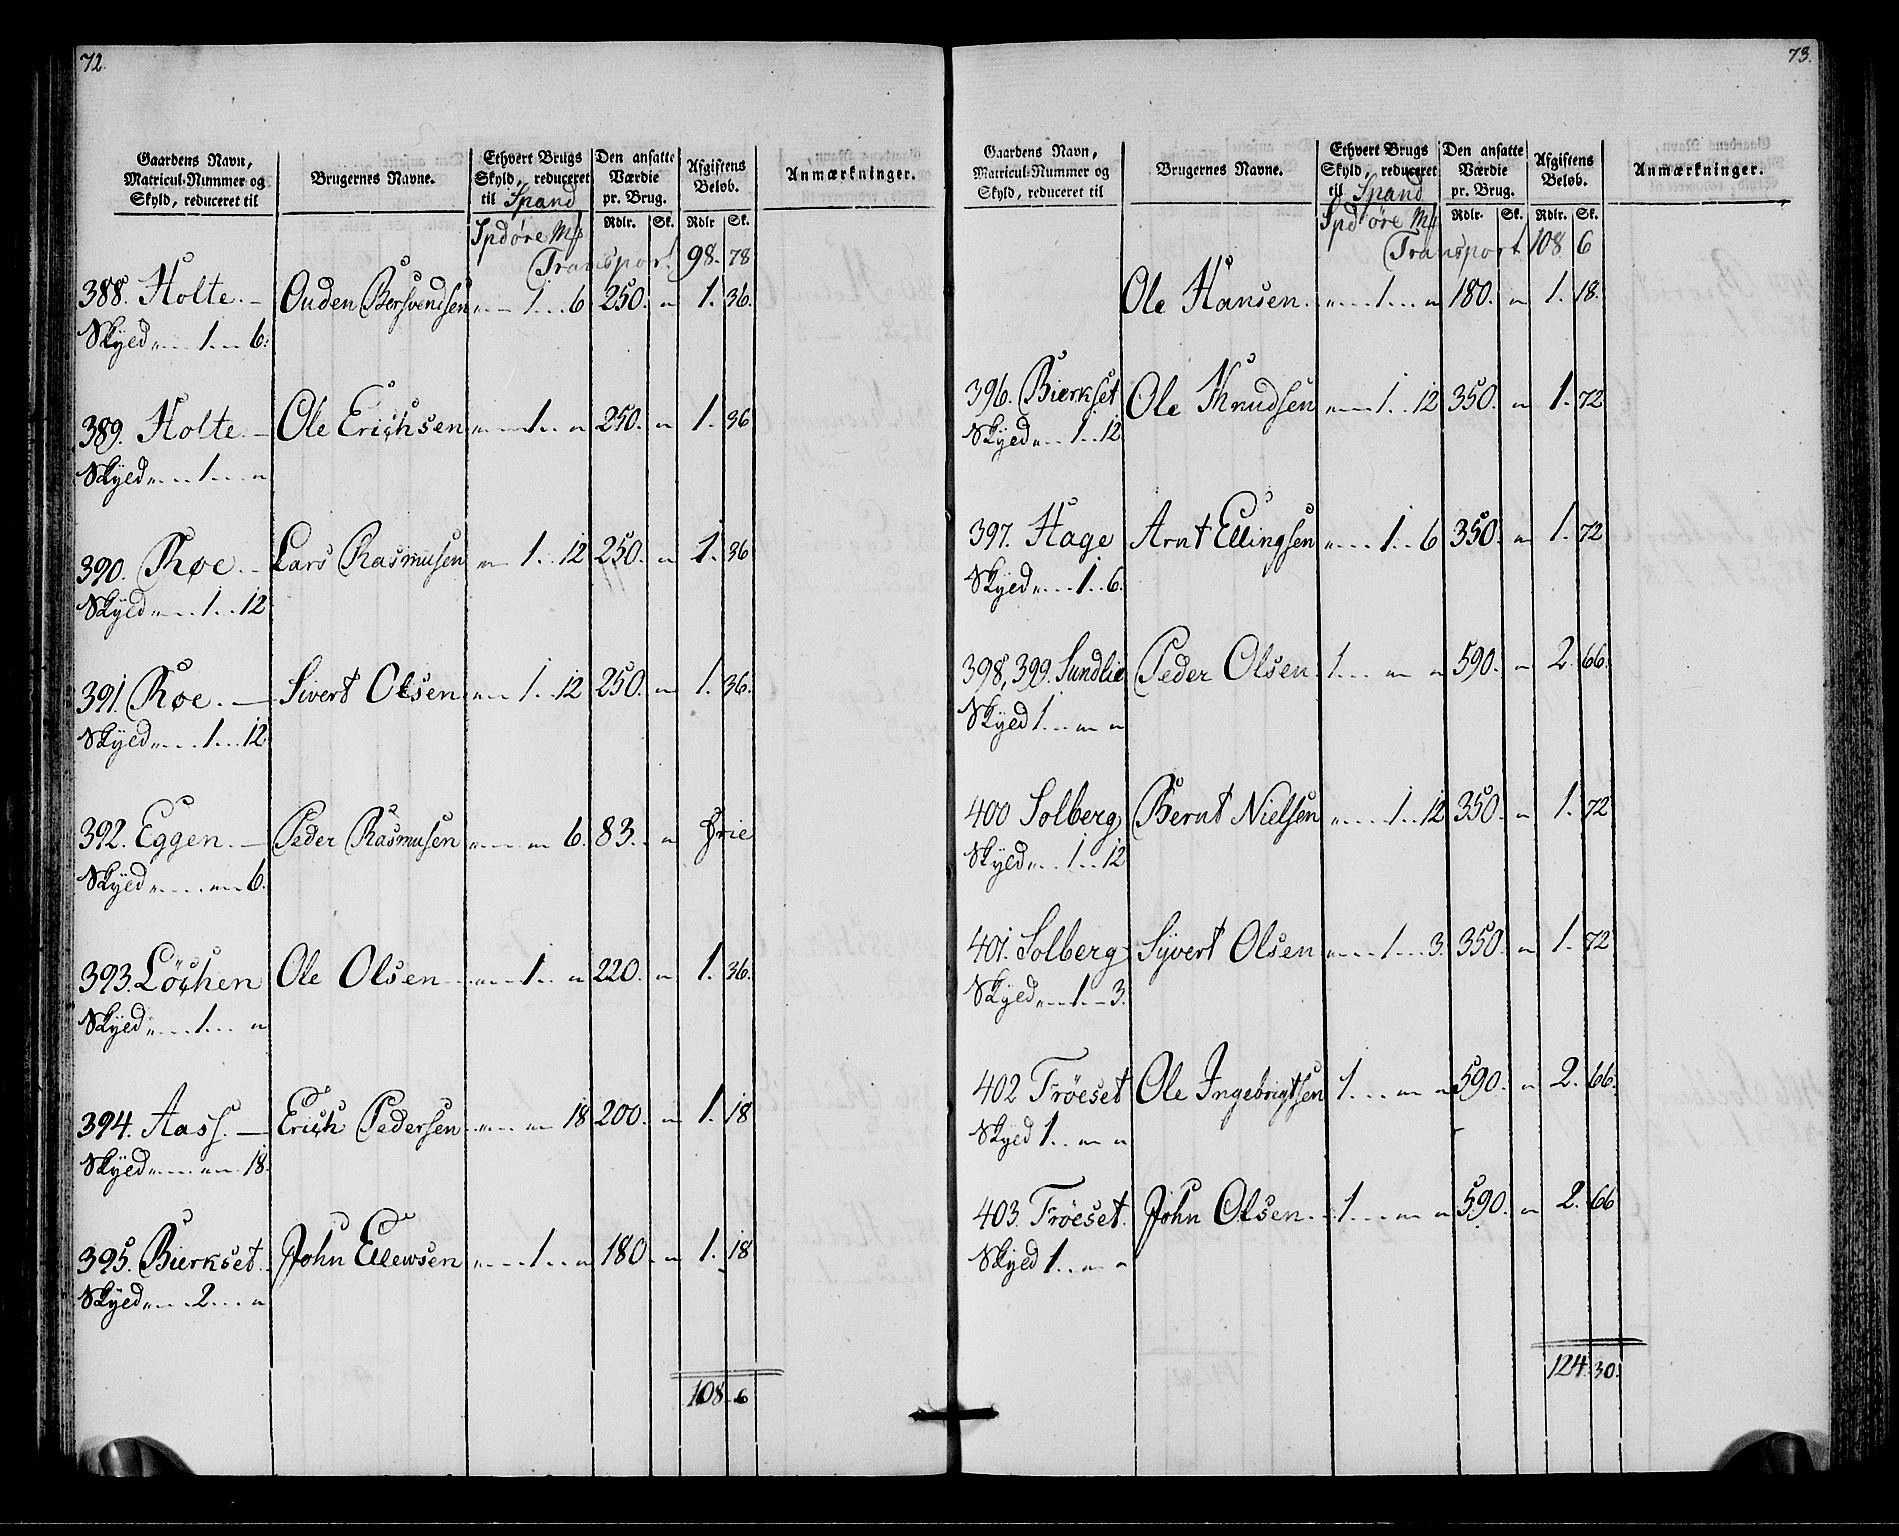 72.
Gaardens Navn, Matricul-Nummer og Skyld, reduceret til
Brugernes Navne.
Ethvert Brugs Skyld, reduceret til Spand
Den ansatte Værdie pr. Brug.
Afgiftens Beløb.
Anmærkninger.
Spd øre Mk Rdlr. Sk. Rdlr Sk.
Transport 98. 78
388. Holte. — Ouden Bersvendsen „ 1 6 250. „ 1. 36.
Skyld „ 1 6.
389. Holte. — Ole Erichsen „ 1 „ 250. „ 1. 36
Skyld „ 1 „
390. Røe. — Lars Rasmusen „ 1 12 250. „ 1. 36
Skyld „ 1 12
391. Røe. — Sivert Olsen „ 1 12 250. „ 1. 36.
Skyld „ 1 12
392. Eggen. — Peder Rasmusen „ „ 6. 83. „ Frie
Skyld „ „ 6.
393. Löchen Ole Olsen „ 1 „ 220. „ 1. 36.
Skyld „ 1 „
394. Aass. — Erich Pedersen „ „ 18 200. „ 1. 18
Skyld „ „ 18.
395. Bierkset. John Ellewsen „ 1 „ 180 „ 1. 18
Skyld „ 2 „
108. 6
73.
Gaardens Navn, Matricul-Nummer og Skyld, reduceret til
Brugernes Navne.
Ethvert Brugs Skyld, reduceret til Spand
Den ansatte Værdie pr. Brug.
Afgiftens Beløb.
Anmærkninger.
Spd øre Mk Rdlr. Sk. Rdlr. Sk.
Transport 108 6
Ole Hansen. „ 1 „ 180. „ 1. 18.
396. Bierkset Ole Knudsen „ 1 12 350. „ 1. 72
Skyld „ 1 12
397. Hage Arnt Ellingsen „ 1 6 350. „ 1. 72
Skyld „ 1 6.
398, 399. Sundlie Peder Olsen 1 „ „ 590. „ 2. 66.
Skyld 1 „ „
400 Solberg Bernt Nielsen „ 1 12 350. „ 1. 72
Skyld „ 1 12
401. Solberg Syvert Olsen „ 1 3. 350. „ 1. 72
Skyld „ 1 3.
402 Tröeset Ole Ingebrigtsen 1 „ „ 590. „ 2. 66.
Skyld 1 „ „
403. Tröeset. John Olsen. 1 „ „ 590. „ 2. 66
Skyld 1 „ „
124. 30.